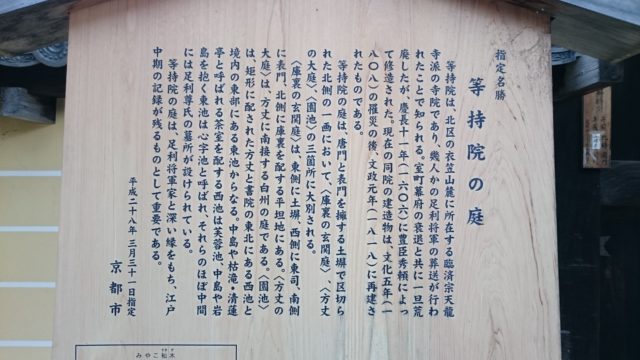 指定名勝
等持院の庭
等持院は、北区の衣笠山麓に所在する臨済宗天龍
寺派の寺院であり、幾人かの足利将軍の葬送が行わ
れたことで知られる。室町幕府の衰退と共に一旦荒
廃したが、慶長十一年（一六〇六）に豊臣秀頼によっ
て修造された。現在の同院の建造物は、文化五年（一
八〇八）の罹災の後、文政元年（一八一八）に再建さ
れたものである。
等持院の庭は、唐門と表門を擁する土塀で区切ら
れた北側の一画において、〈庫裏の玄関庭〉、〈方丈
の大庭〉、〈園池〉の三箇所に大別される。
〈庫裏の玄関庭〉は、東側に土塀、西側に東司、南側
に表門、北側に庫裏を配する平坦地にある。〈方丈の
大庭〉は、方丈に南接する白州の庭である。〈園池〉
は、矩形に配された方丈と書院の東北にある西池と
境内の東部にある東池からなる。中島や枯滝・清漣
亭と呼ばれる茶室を配する西池は芙蓉池、中島や岩
島を抱く東池は心字池と呼ばれ、それらのほぼ中間
には足利尊氏の墓所が設けられている。
等持院の庭は、足利将軍家と深い縁をもち、江戸
中期の記録が残るものとして重要である。
平成二十八年三月三十一日指定
京都市
みやこ杣木